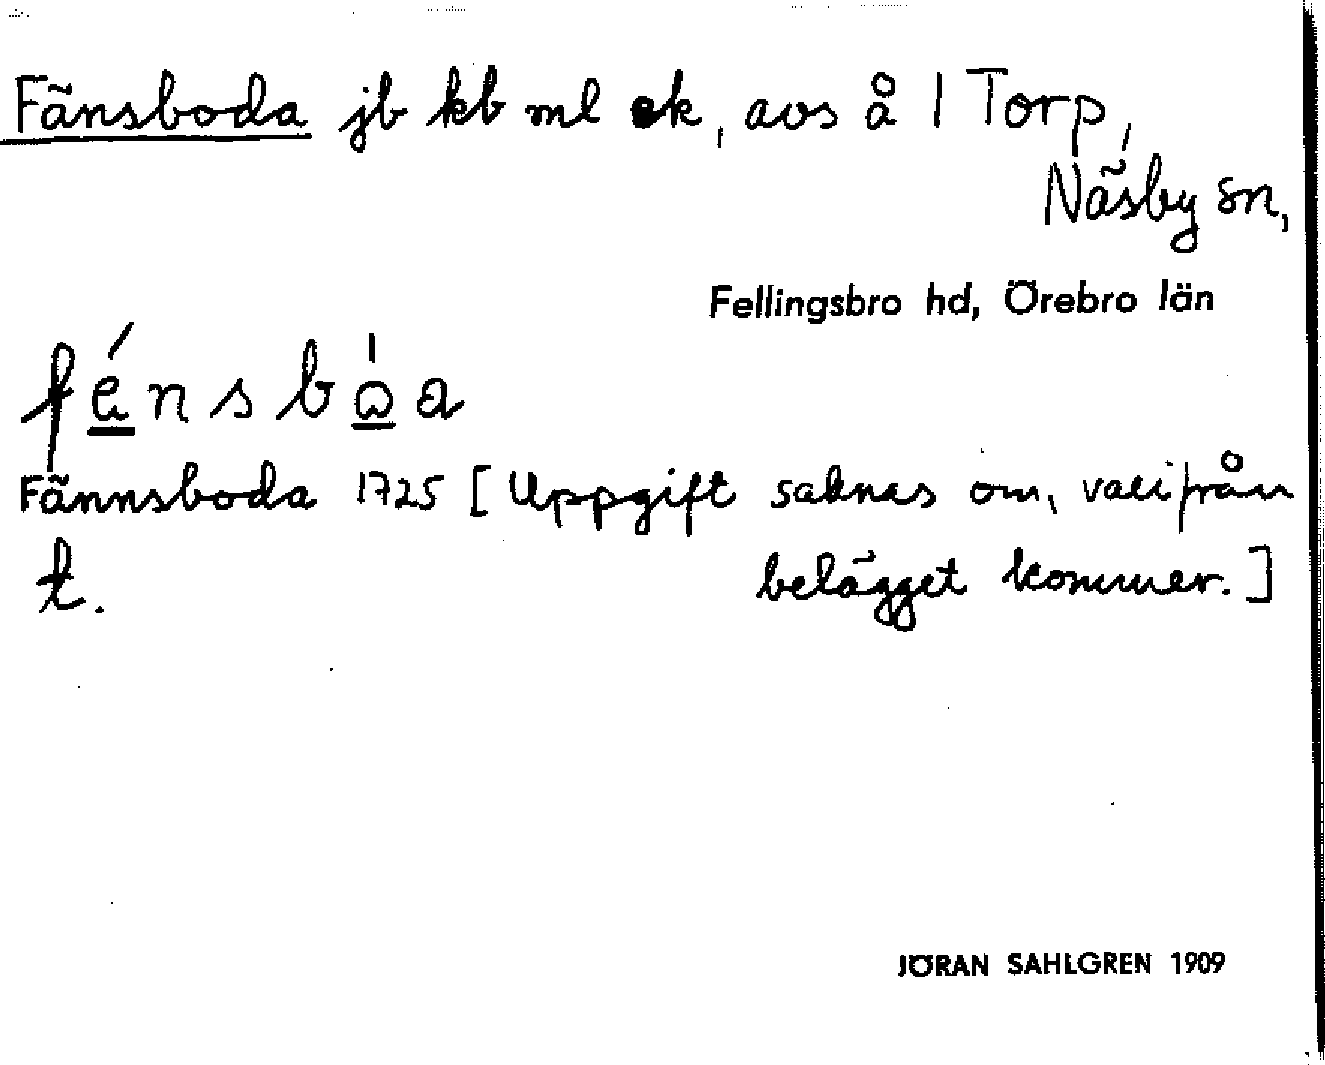 Fänsboda jb kb ml ek, avs å 1 Torp,
Näsby sn,
Fellingsbro hd, Örebro län
Fännsboda 1725 [Uppgift saknas om, varifrån
t. belägget kommer.]
JÖRAN SAHLGREN 1909